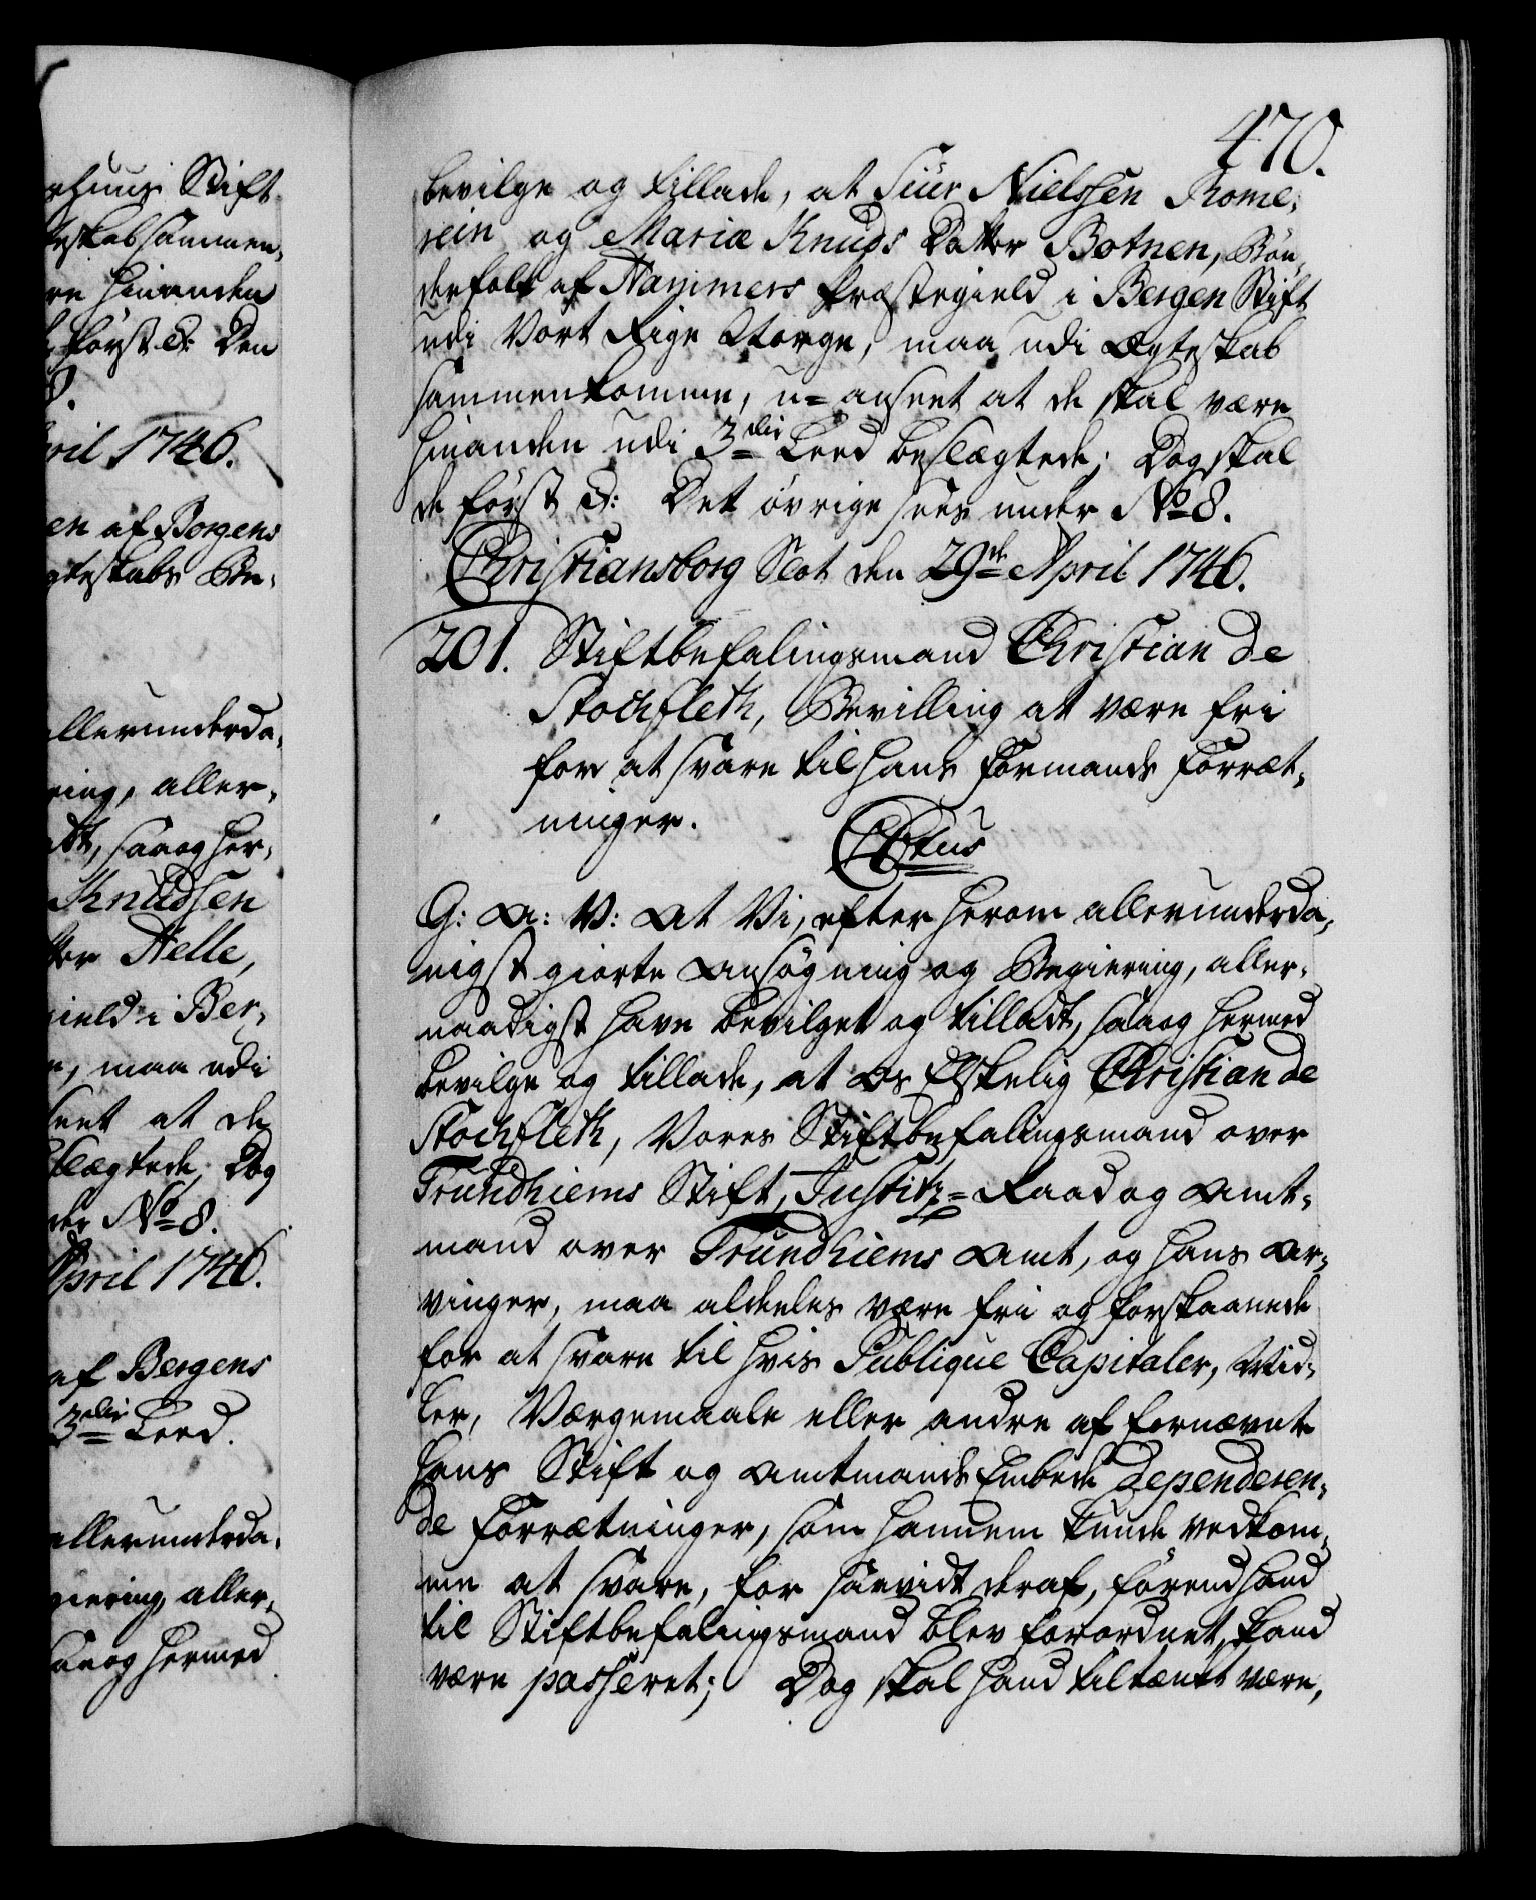 470.
bevilge og tillade, at Siur Nielssen Rome-
rein og Mariæ Knuds Datter Botnen, Bøn-
derfolk af Hammers Præstegield i Bergen Stift
udi Vort Rige Norge, maa udi Ægteskab
sammenkomme, u-anseet at de skal være
hinanden udi 3die Leed beslægtede; Dog skal
de først &: Det øvrige sees under No 8.
Christiansborg Slot den 29de April 1746.
201. Stiftbefalingsmand Christian de
Stochfleth, Bevilling at være fri
for at svare til hans Formands Forræt-
ninger.
C6tus
G: A: V: At Vi, efter herom allerunderda-
nigst giorte Ansøgning og Begiering, aller-
naadigst have bevilget og tilladt, saa og hermed
bevilge og tillade, at Os Elskelig Christian de
Stochfleth, Vores Stiftbefalingsmand over
Trundhiems Stift, Justitz-Raad og Amt-
mand over Trundhiems Amt, og hans Ar-
vinger, maa aldeeles være fri og forskaanede
for at svare til hvis Publique Capitaler, Mid-
ler, Værgemaale eller andre af fornævnte
hans Stift og Amtmands Embede dependeren-
de Forrætninger, som hannem kunde vedkom-
me at svare, for saavidt deraf, førend hand
til Stiftbefalingsmand blev forordnet, kand
være passeret; Dog skal hand tiltænkt være,
rhuus Stift
teskab sammen-
re hinanden
først &: Den
8.
pril 1746.
en af Bergens
gteskabs Be-
allerunderda-
ring, aller-
adt, saa og her-
Knudssen
tter Helle,
gield i Ber-
e, maa udi
seet at de
slægtede; Dog
der No 8.
April 1746.
af Bergens
3die Leed.
allerunderda-
giering, aller-
saa og hermed